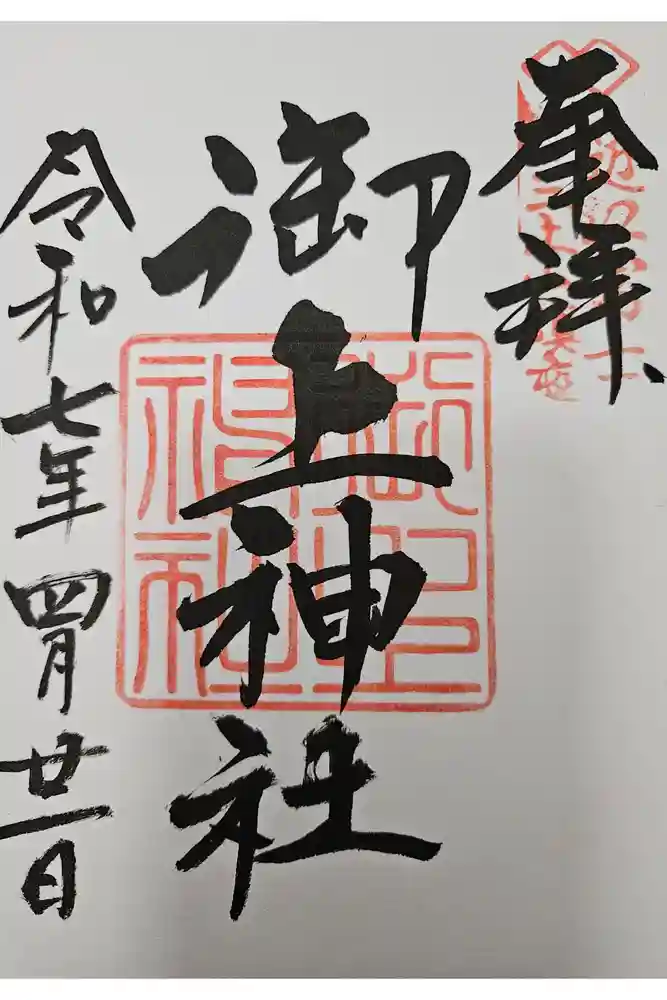 奉拝
御上神社
令和七年四月廿一日